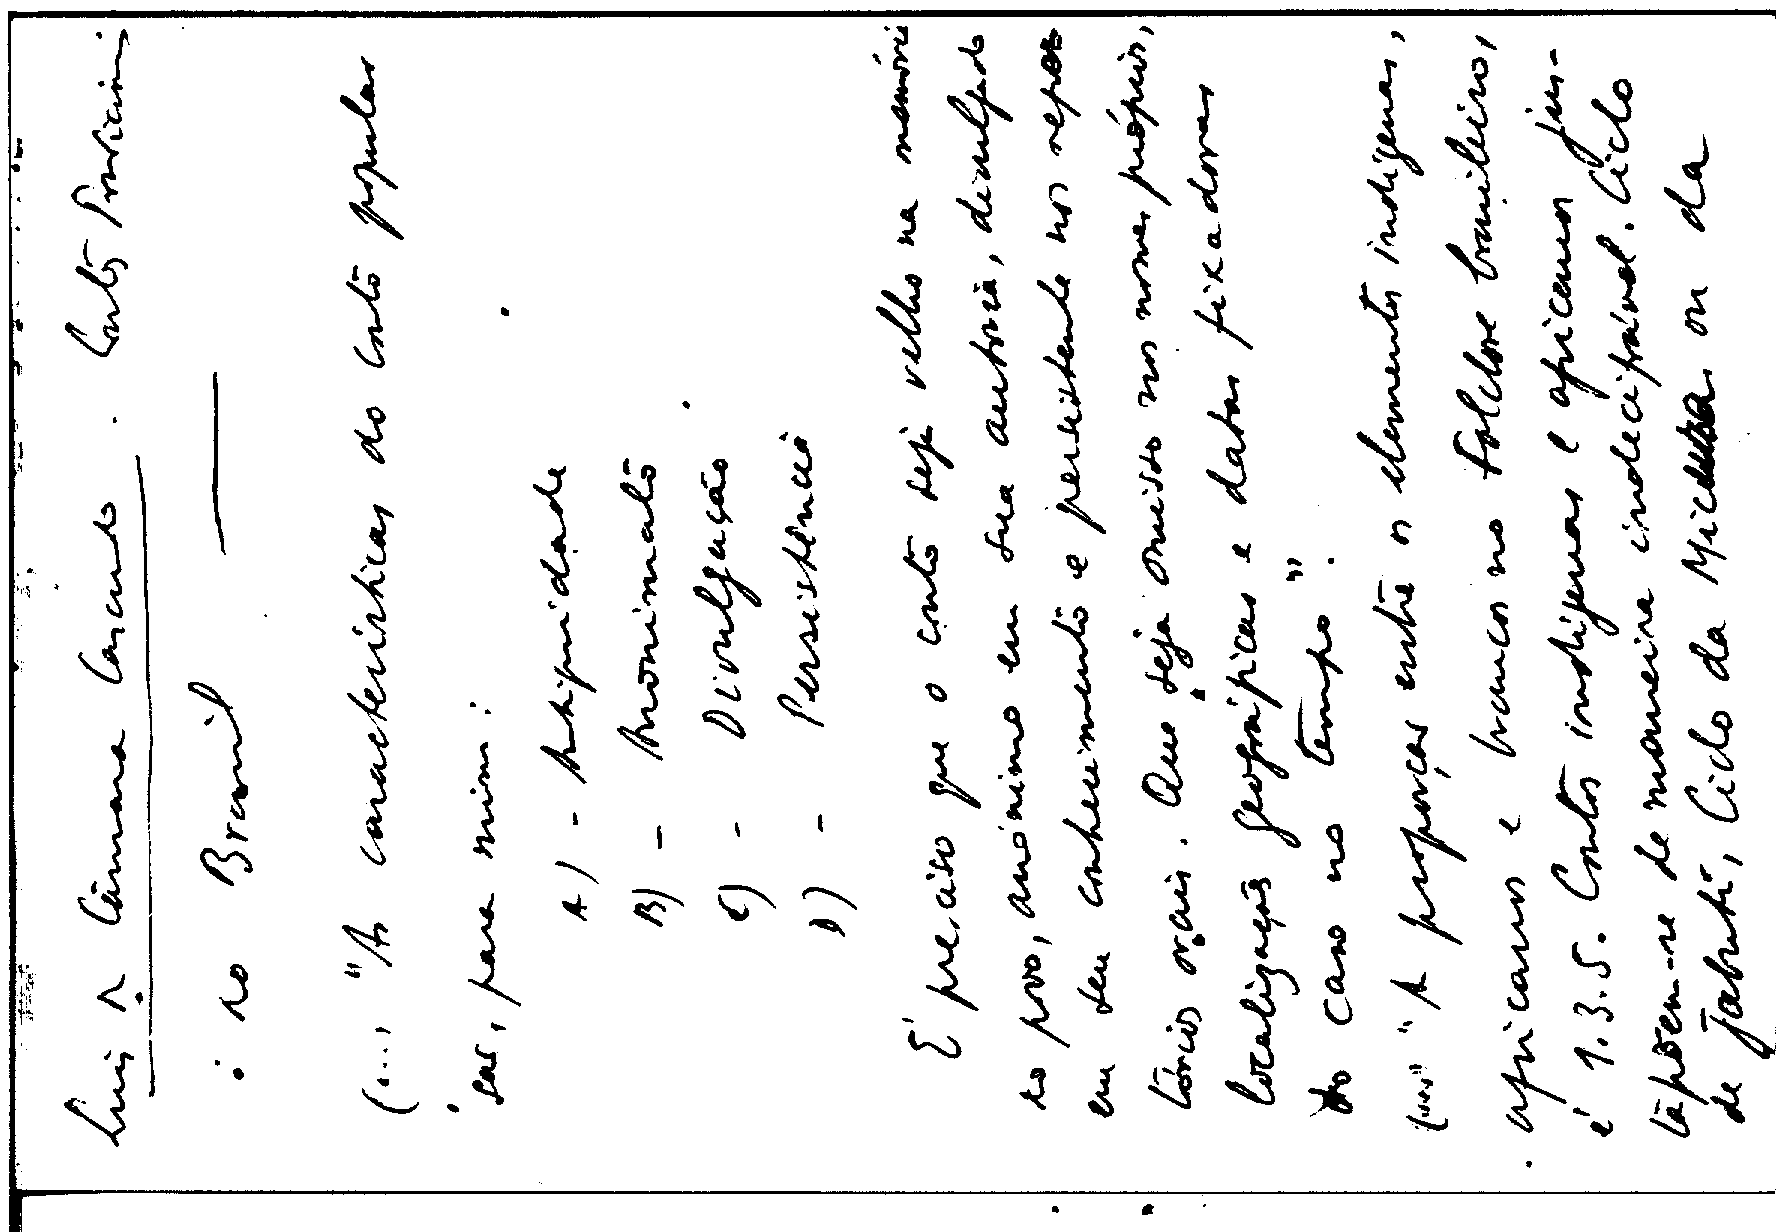 Luis da Câmara Cascudo. Contos Tradicion.
do Brasil
(... "As características do conto popular
sas, para mim:
A) - Antiguidade
B) - Anonimato
C) - Divulgação
D) - Persistência
É preciso que o conto seja velho na memória
do povo, anônimo em sua autoria, divulgado
em seu conhecimento e persistente nos reper
tórios orais. Que seja omisso nos nomes próprios,
localizações geográficas e datas fixadoras
do caso no tempo".
(..." A proporção entre os elementos indígenas,
africanos e brancos no Folclore brasileiro,
é 1.3.5. Contos indígenas e africanos jus-
tapõem-se de maneira indecifrável. Ciclo
de Jabuti, Ciclo da ou da